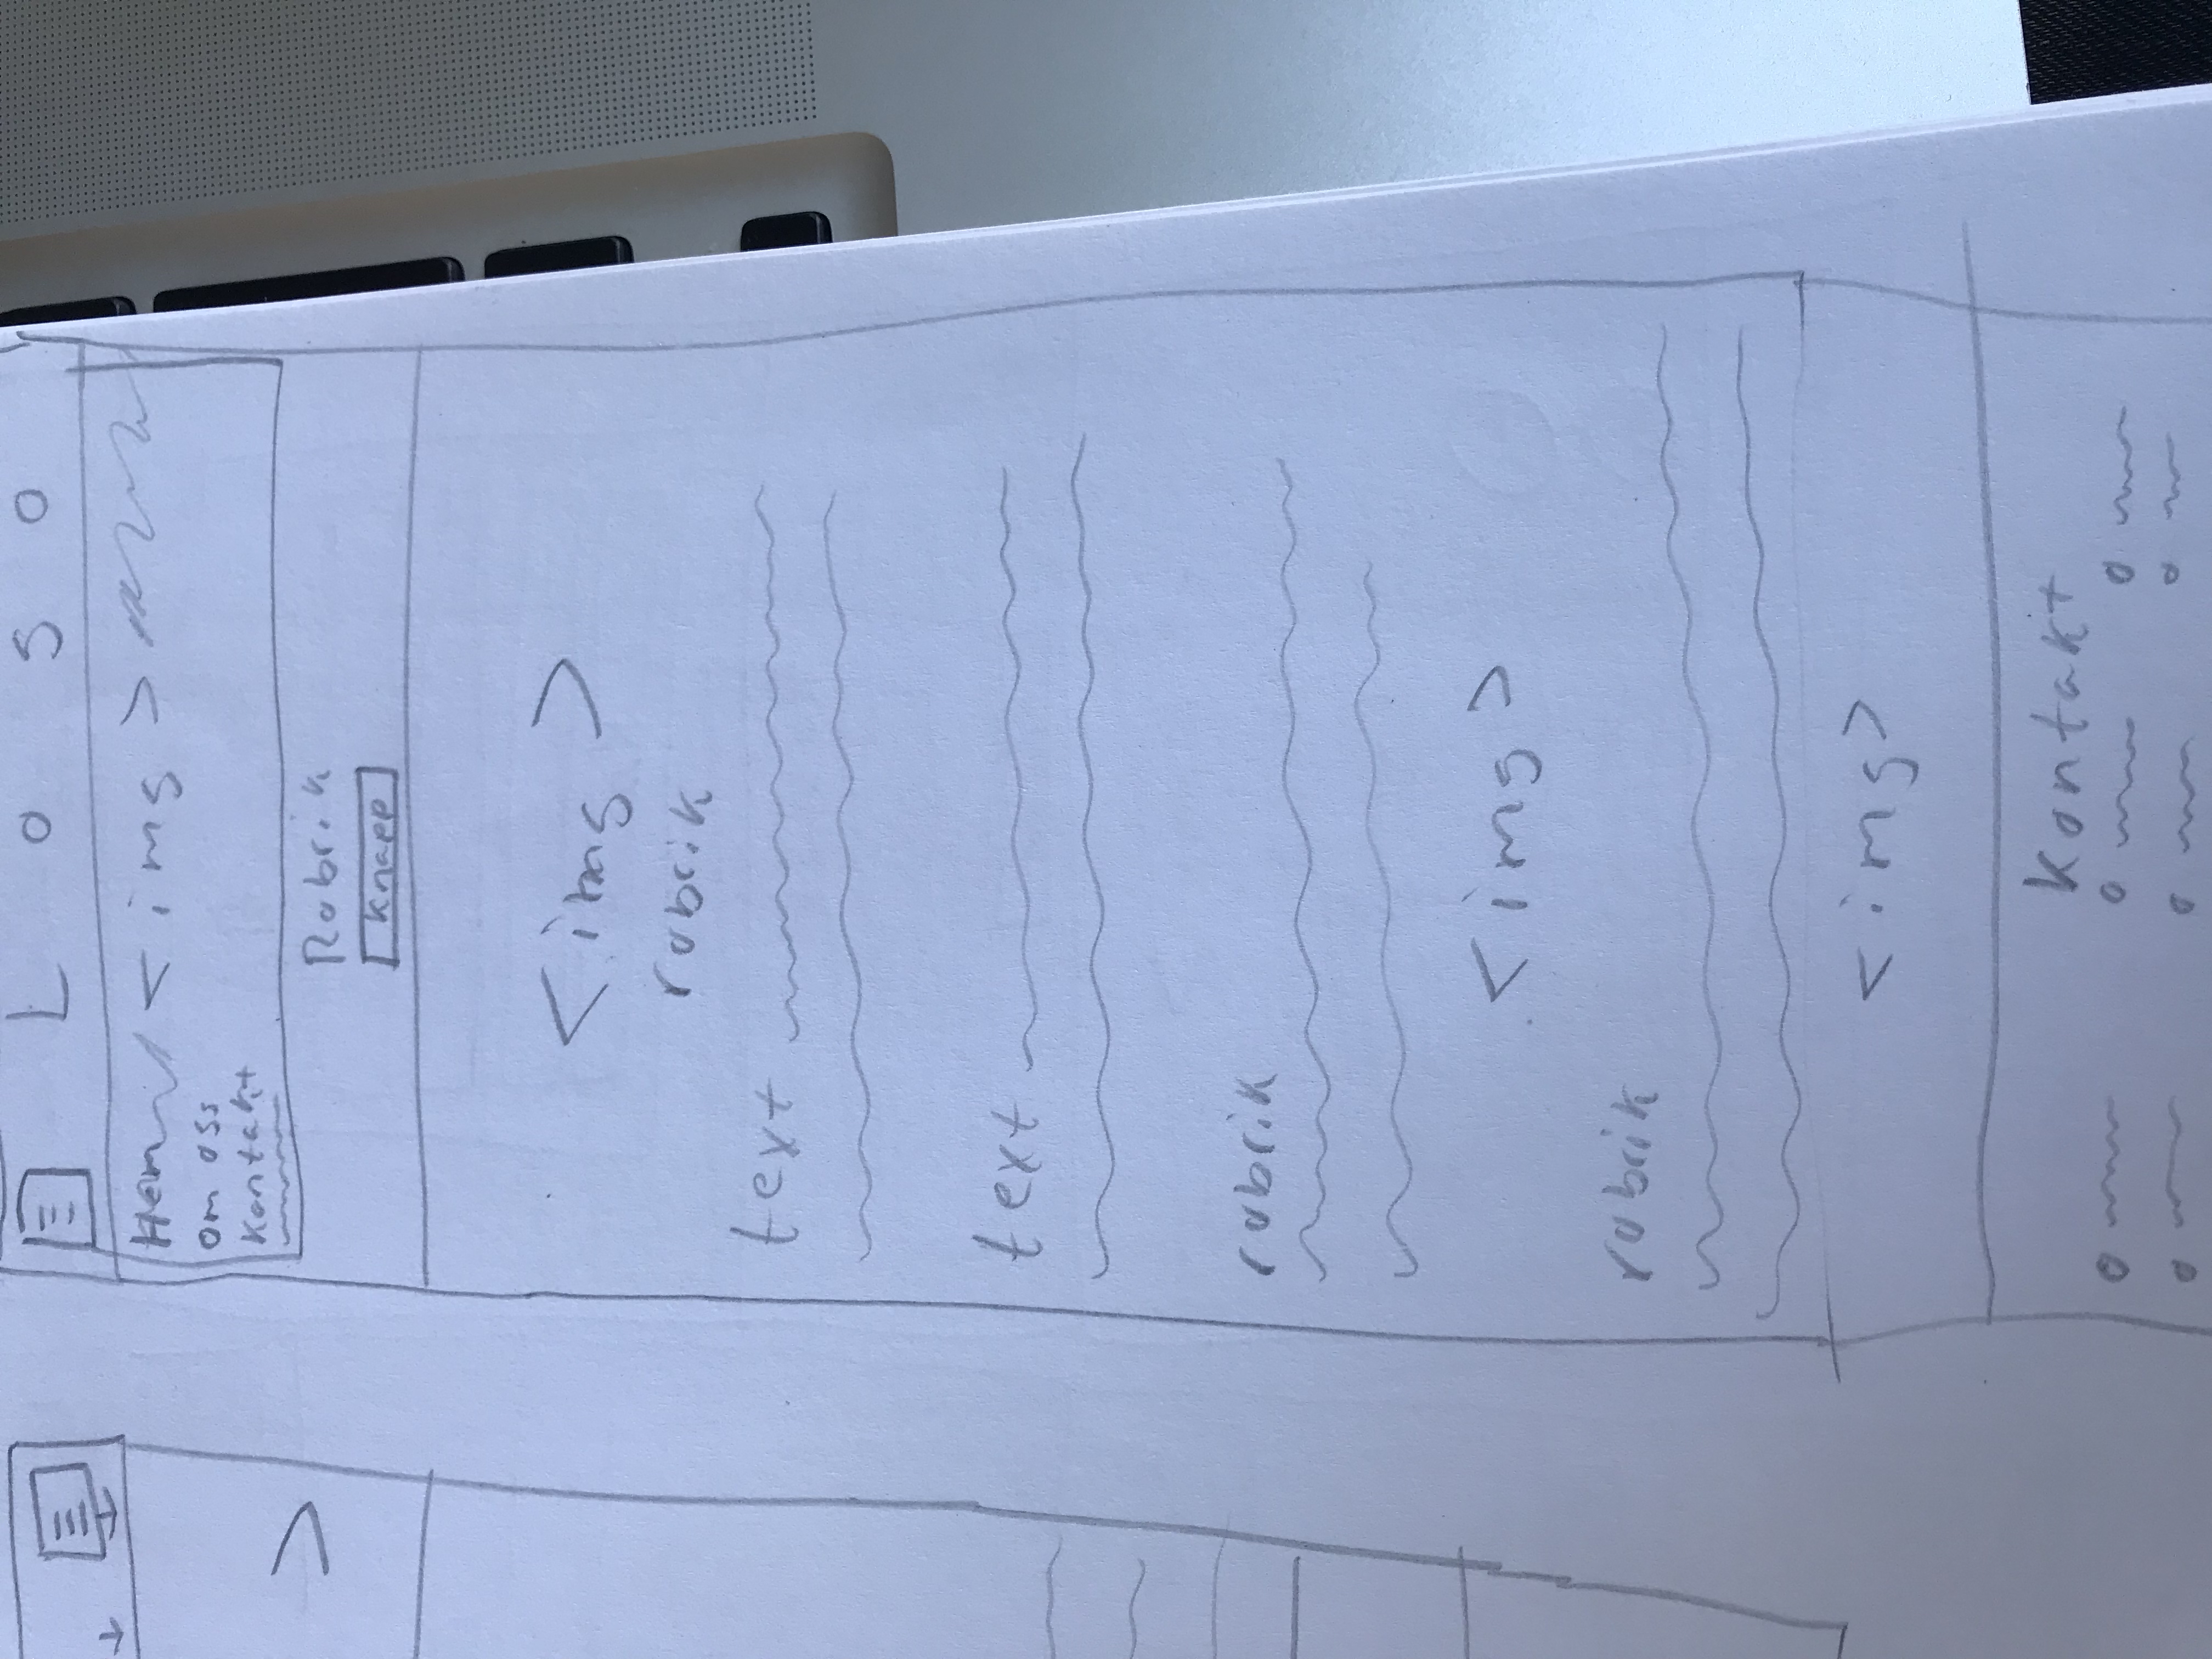 L o g o
Hem <img>
om oss
Kontakt
Rubrik
Knapp
<img>
rubrik
text
text
rubrik
<img>
rubrik
<img>
Kontakt